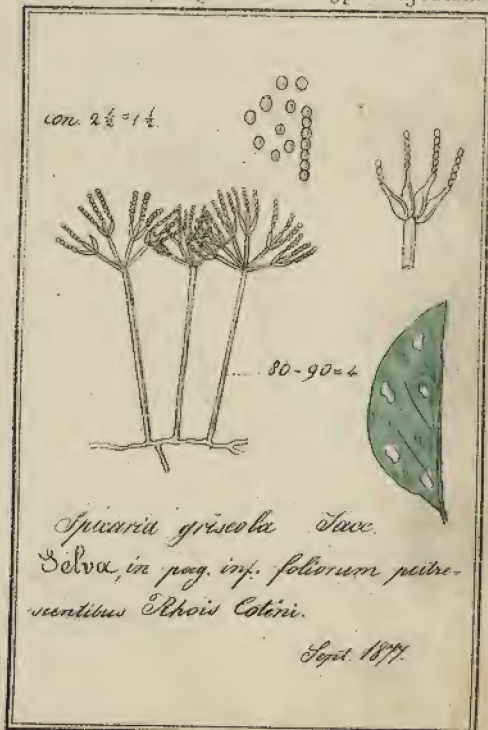 con. 2 ½ = 1 ½.
80-90=4
Spicaria griseola Sacc.
Selva, in pag. inf. foliorum putre-
scentibus Rhois Cotini.
Sept. 1877.